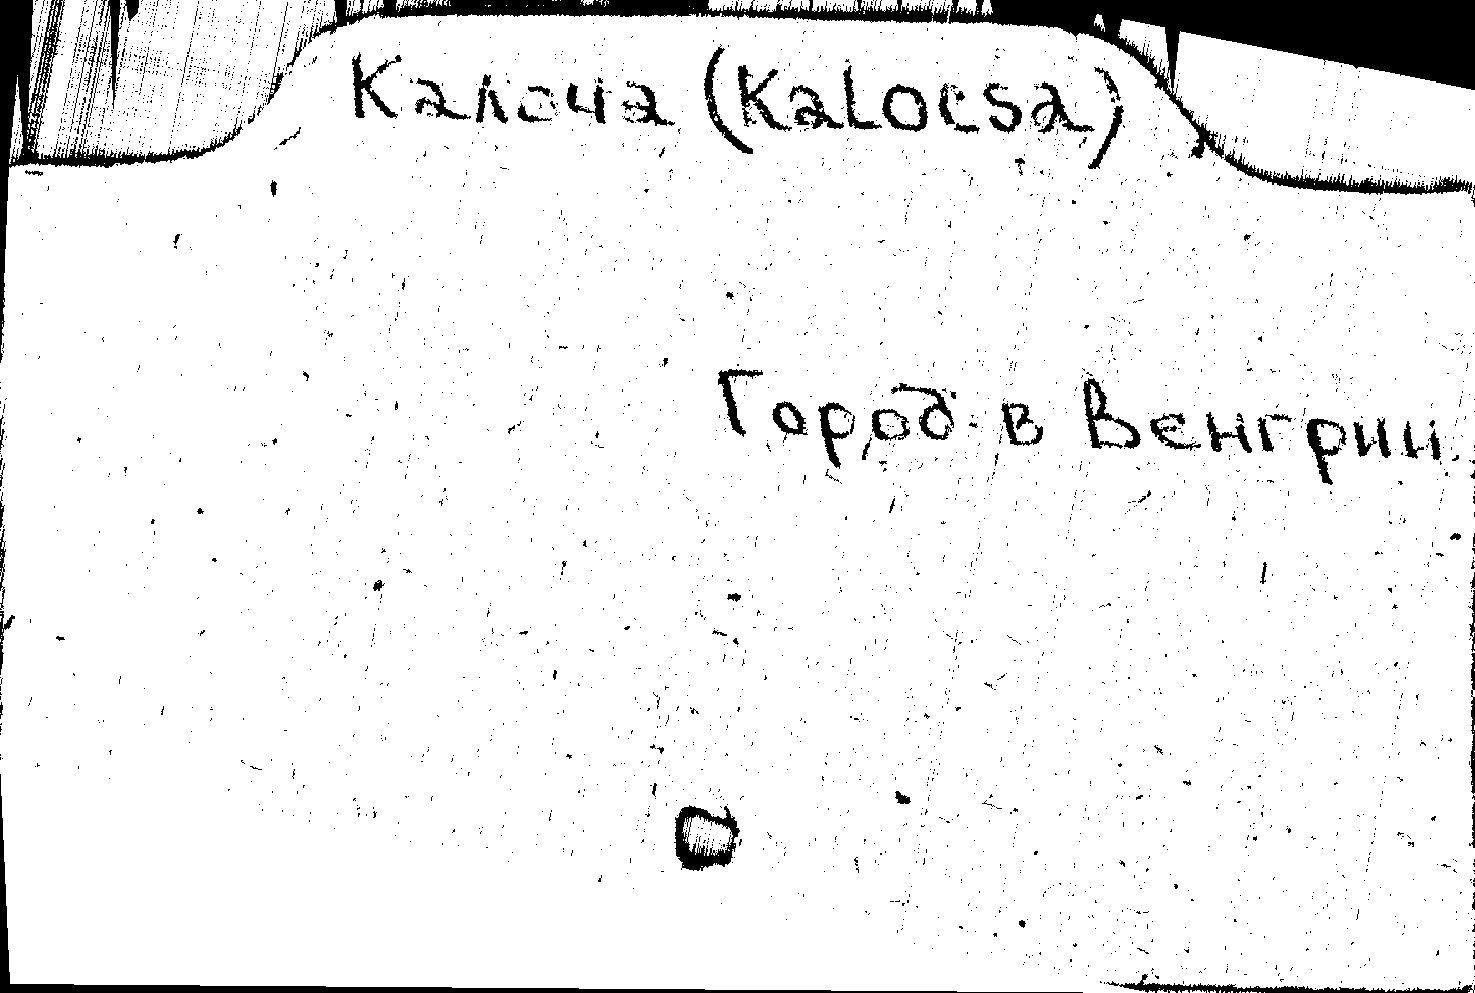 Калоча (Kalocsa)
Город в Венгрии.